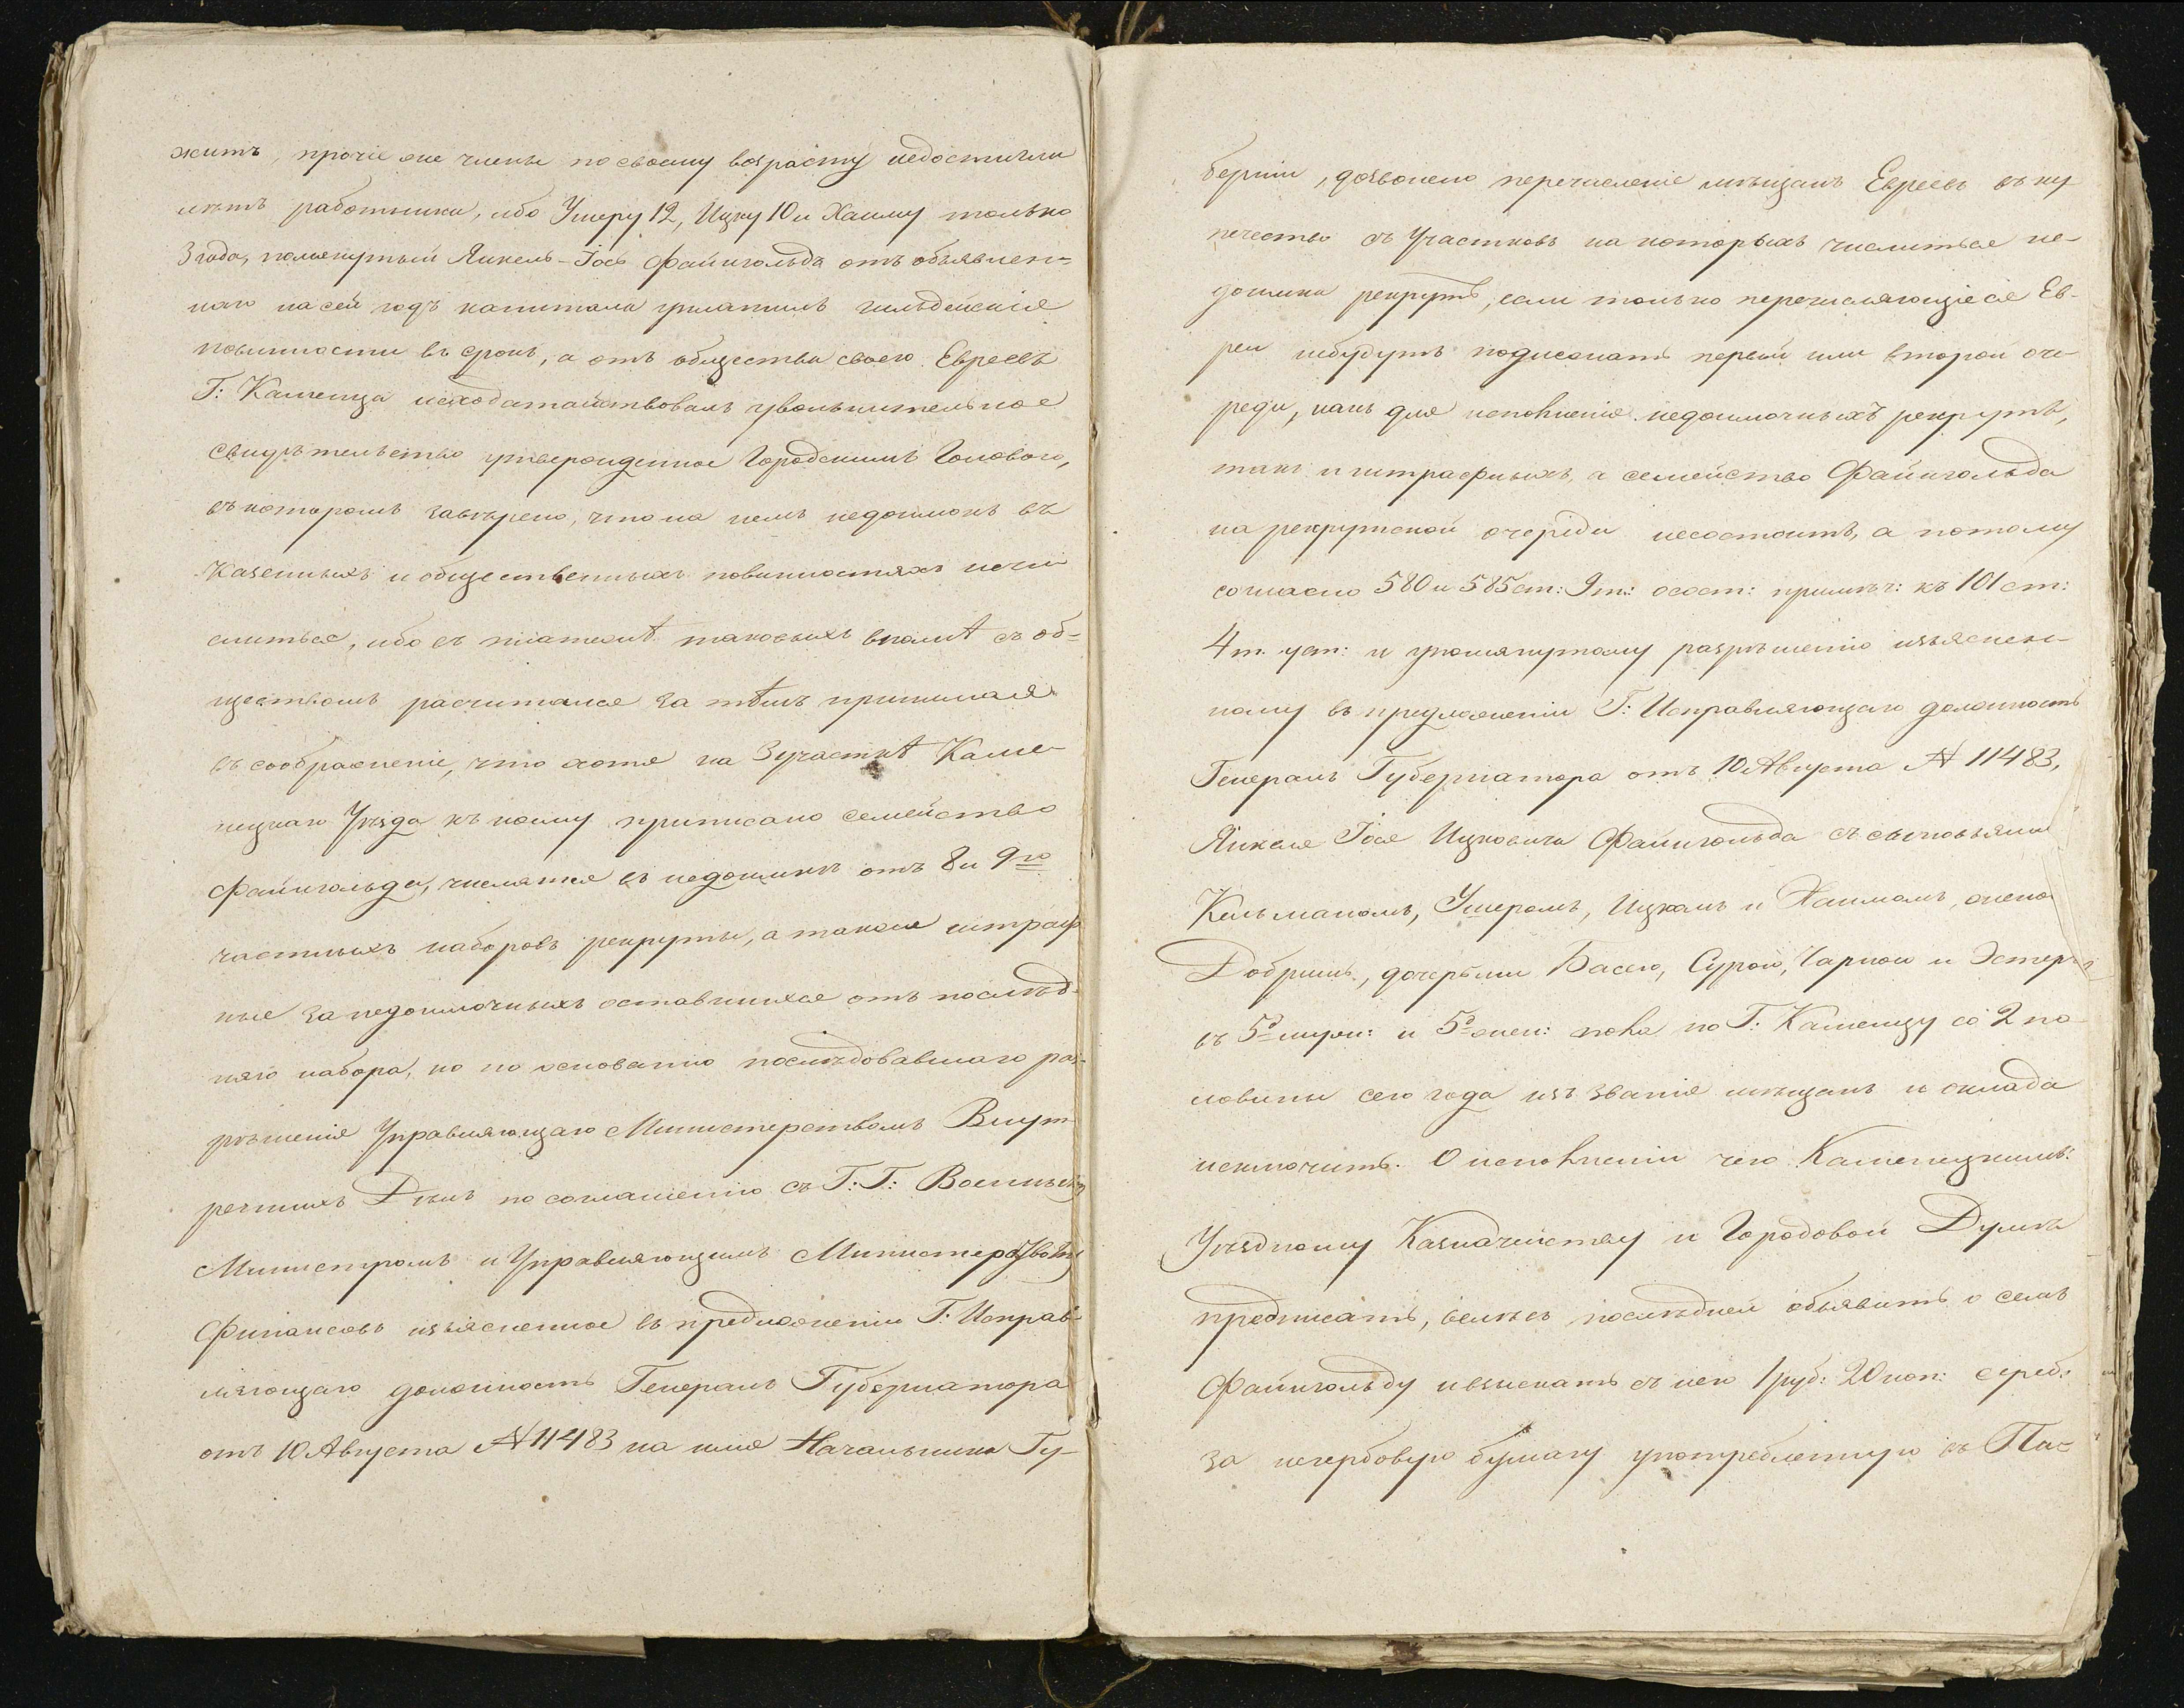 житъ, прочіе же члены по своему возрасту недостигли
лѣтъ работника, ибо Ушеру 12, Ицку 10 и Хаиму только
3 года, помянутый Янкель-Іось Файнгольдъ отъ объявлен=
наго на сей годъ капитала уплатилъ гильдейскія
повинности въ срокъ, а отъ общества своего Евреевъ
Г: Каменца исходатайствовалъ увольнительное
свидѣтельство утвержденное Городскимъ Головою,
въ которомъ завѣрено, что на немъ недоимокъ въ
Казенныхъ и общественныхъ повинностяхъ нечи
слиться, ибо въ платежѣ таковыхъ вполнѣ съ об=
ществомъ расчитался за тѣмъ принимая
въ соображеніе, что хотя на 3 участкѣ Каме
нецкаго Уѣзда къ коему приписано семейство
Файнгольда, числятся въ недоимкѣ отъ 8 и 9го
частныхъ наборовъ рекруты, а также штраф
ные за недоимочныхъ оставшихся отъ послѣд
няго набора, но по основанію послѣдовавшаго раз-
рѣшенія Управляющаго Министерствомъ Внут
реннихъ Дѣлъ по соглашенію съ Г: Г: Военнымъ
Министромъ и Управляющимъ Министерствомъ
Финансовъ изъясненное въ предложеніи Г: Исправ
ляющаго должность Генералъ Губернатора
отъ 10 Августа № 11483 на имя Начальника Гу-
берніи, дозволено перечисленіе мѣщанъ Евреевъ въ ку
печество съ Участковъ на которыхъ числиться не-
доимка рекрутъ, если только перечисляющіеся Ев-
реи небудутъ подлежать первой или второй оче
реди, какъ для исполненія недоимочныхъ рекрутъ,
такъ и штрафныхъ, а семейство Файнгольда
на рекрутской очереди несостоитъ, а потому
согласно 580 и 585 ст: 9 т: особ: примѣч: къ 101 ст:
4 т. уст: и упомянутому разрѣшенію изъяснен-
ному въ предложеніи Г: Исправляющаго должность
Генералъ Губернатора отъ 10 Августа № 11483,
Янкеля Іося Ицковича Файнгольда съ сыновьями
Кельманомъ, Ушеромъ, Ицкомъ и Хаимомъ, женою
Добришъ, дочерьми Басею, Сурою, Чарною и Эстерою
въ 5 муж: и 5 жен: пола по Г: Каменцу со 2 по
ловины сего года изъ званія мѣщанъ и оклада
исключить. О исполненіи чего Каменецкимъ:
Уѣздному Казначейству и Городовой Думѣ
предписать, велѣвъ послѣдней объявить о семъ
Файнгольду и взыскать съ него 1 руб: 20 коп: сереб:
за негербовую бумагу употребленную въ Па=